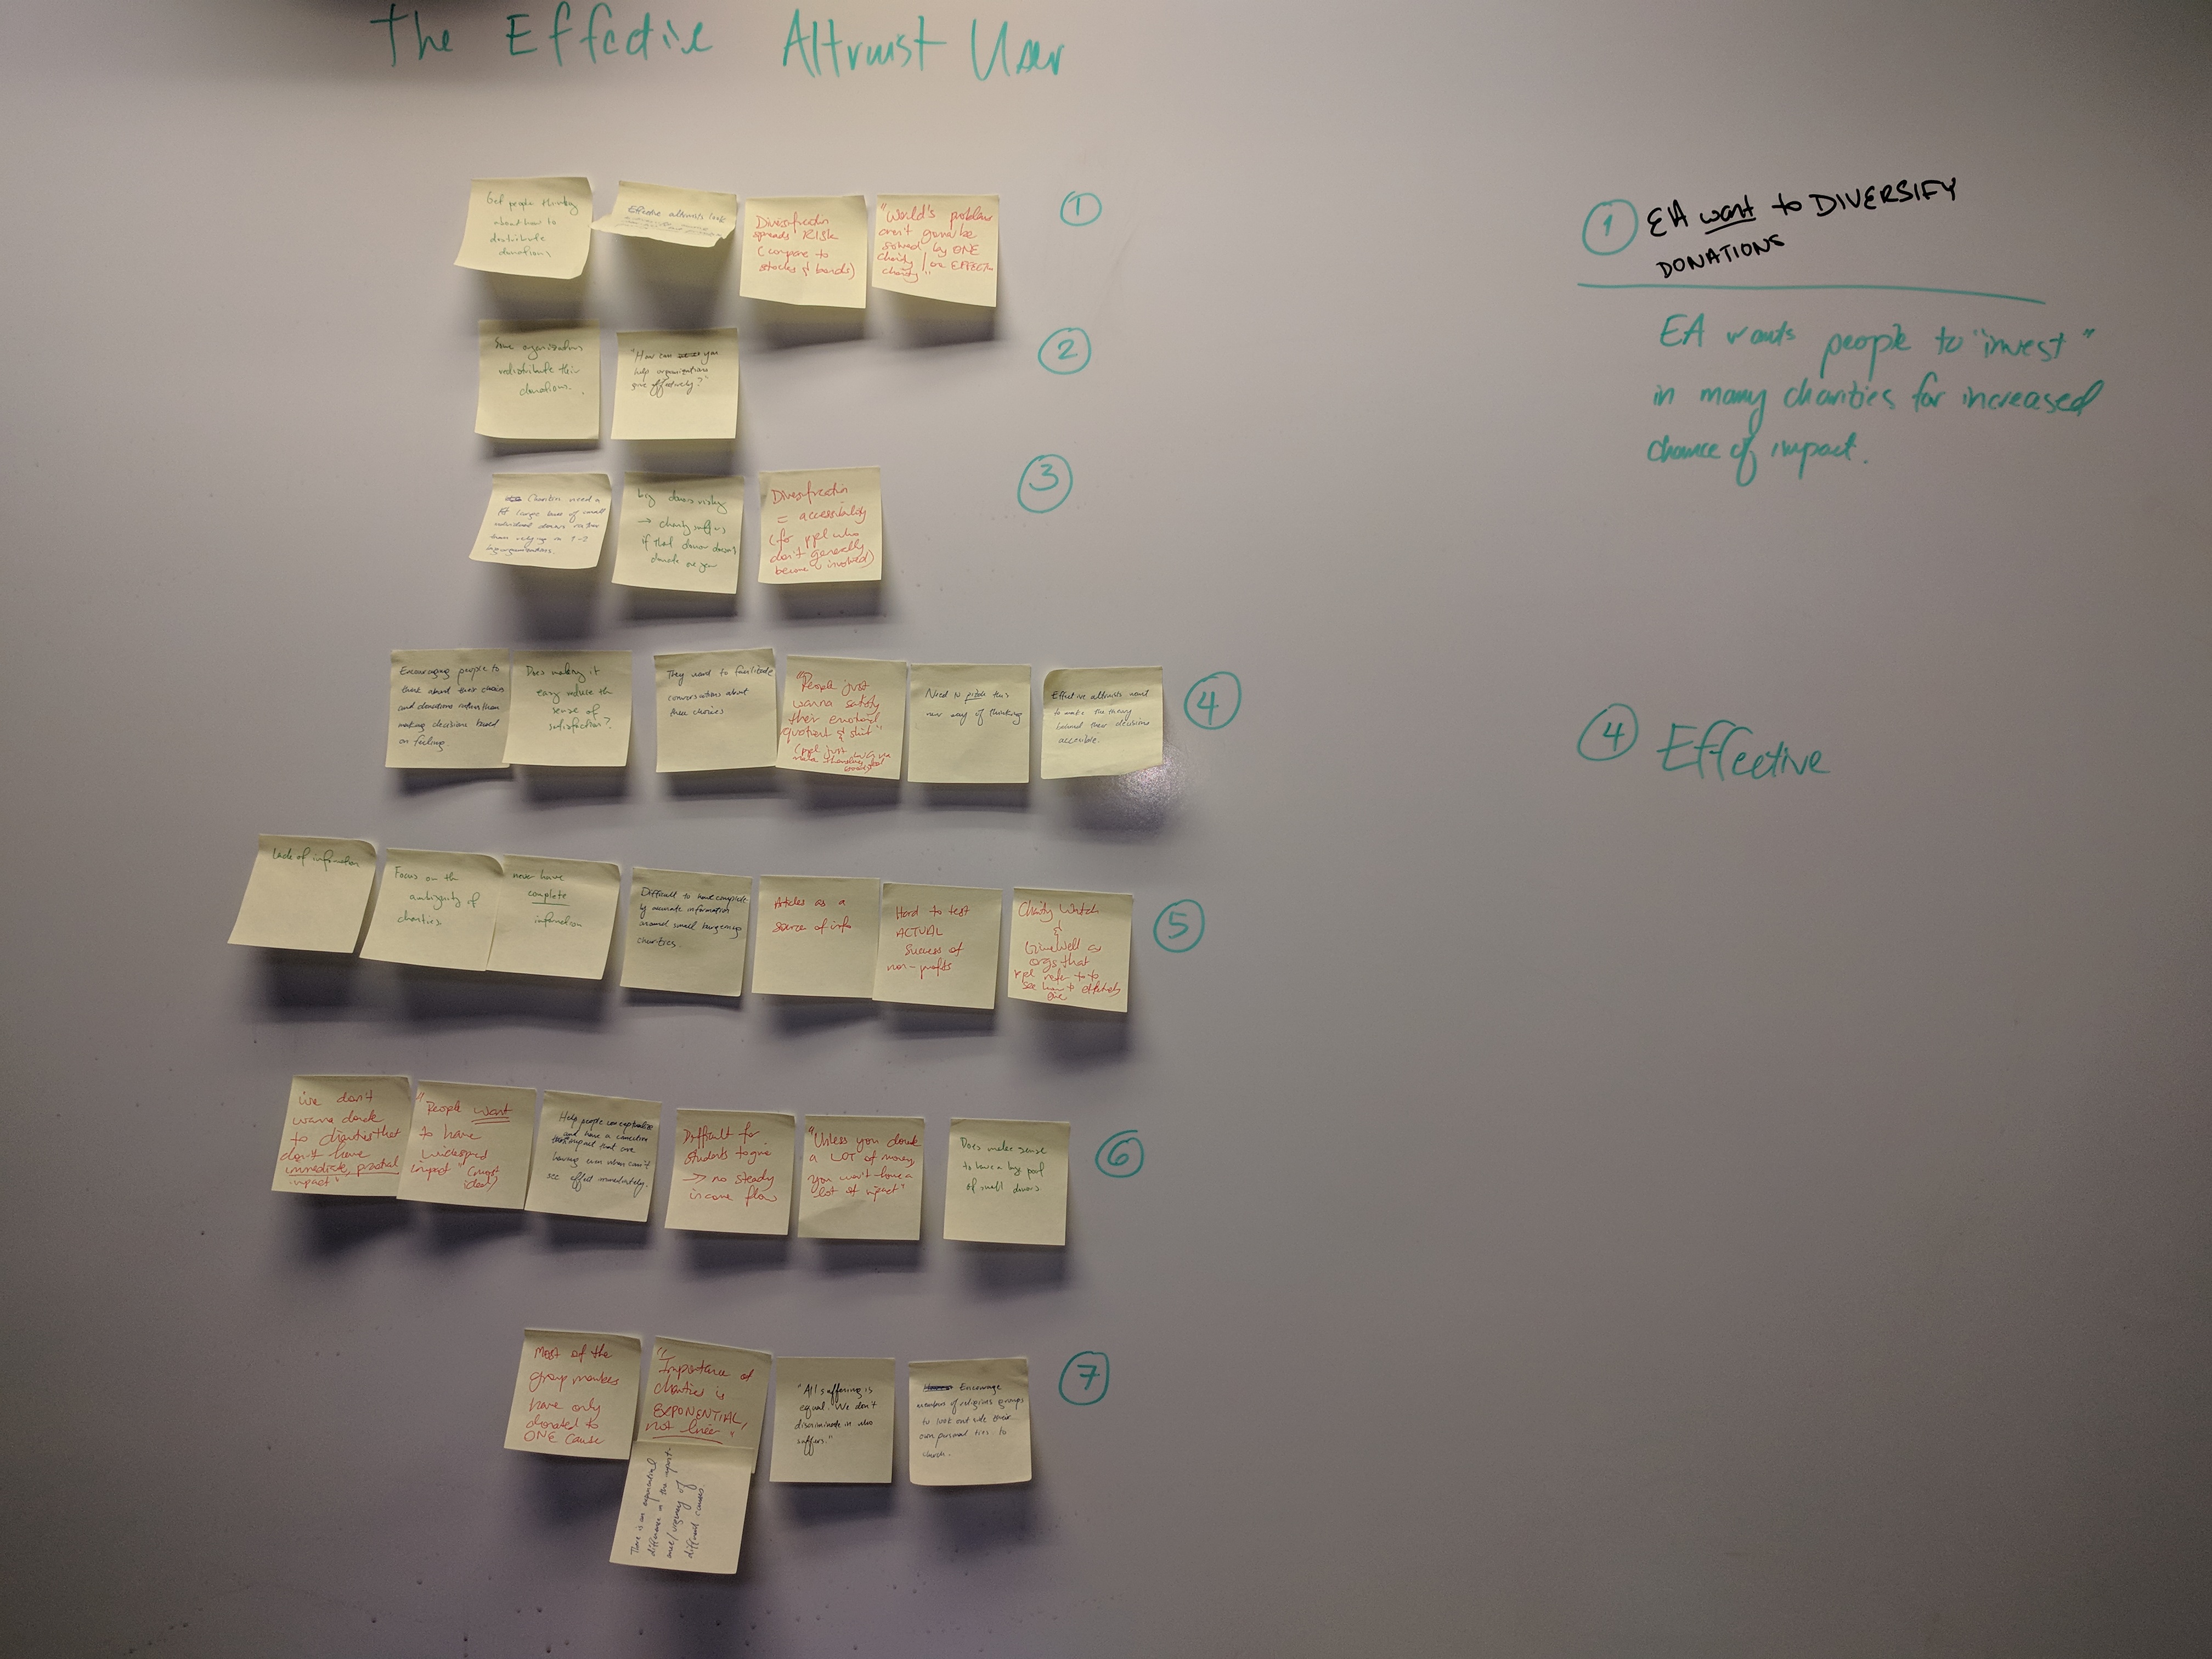 The Effective Altruist User
Get people thinking
about how to
distribute
donations
Effective altruists look
Diversification
spreads RISK
(compare to
stocks & bonds)
"World's problems
aren't gonna be
solved by ONE
charity / one EFFECTive
charity"
①
Some organizations
redistribute their
donations.
"How can you
help organizations
give effectively?"
②
Charities need a
large base of small
individual donors rather
than relying on 1-2
big organizations.
big donors risky
→ charity suffers
if that donor doesn't
donate one year
Diversification
= accessibility
(for ppl who
don't generally
become involved)
③
Encouraging people to
think about their choices
and donations rather than
making decisions based
on feeling.
Does making it
easy reduce the
sense of
satisfaction?
They want to facilitate
conversations about
these choices
"People just
wanna satisfy
their emotional
quotient & shit"
(ppl just
make themselves
Need to pitch this
new way of thinking
Effective altruists want
to make the theory
behind their decisions
accesible.
④
Lack of information
Focus on the
ambiguity of
charities.
never have
complete
information
Difficult to have complete
ly accurate information
around small burgeoning
charities.
Articles as a
source of info
Hard to test
ACTUAL
success of
non-profits
Charity Watch
&
GiveWell as
orgs that
ppl refer to to
see how to effectively
give
⑤
"We don't
wanna donate
to charities that
don't have
immediate, practical
impact"
"People want
to have
widespread
impact"
Help people conceptualize
and have a connection
impact that are
having even when can't
see effect immediately.
Difficult for
students to give
→ no steady
income flow
"Unless you donate
a LOT of money,
you won't have a
lot of impact"
Does make sense
to have a big pool
of small donors.
⑥
Most of the
group members
have only
donated to
ONE cause
"Importance of
charities is
EXPONENTIAL,
not linear."
There is an exponential
difference in the import-
ance/urgency of
different causes.
"All suffering is
equal. We don't
discriminate in who
suffers."
Encourage
members of religious groups
to look outside their
own personal ties to
church.
⑦
① EA want to DIVERSIFY
DONATIONS
EA wants people to "invest"
in many charities for increased
chance of impact.
④ Effective